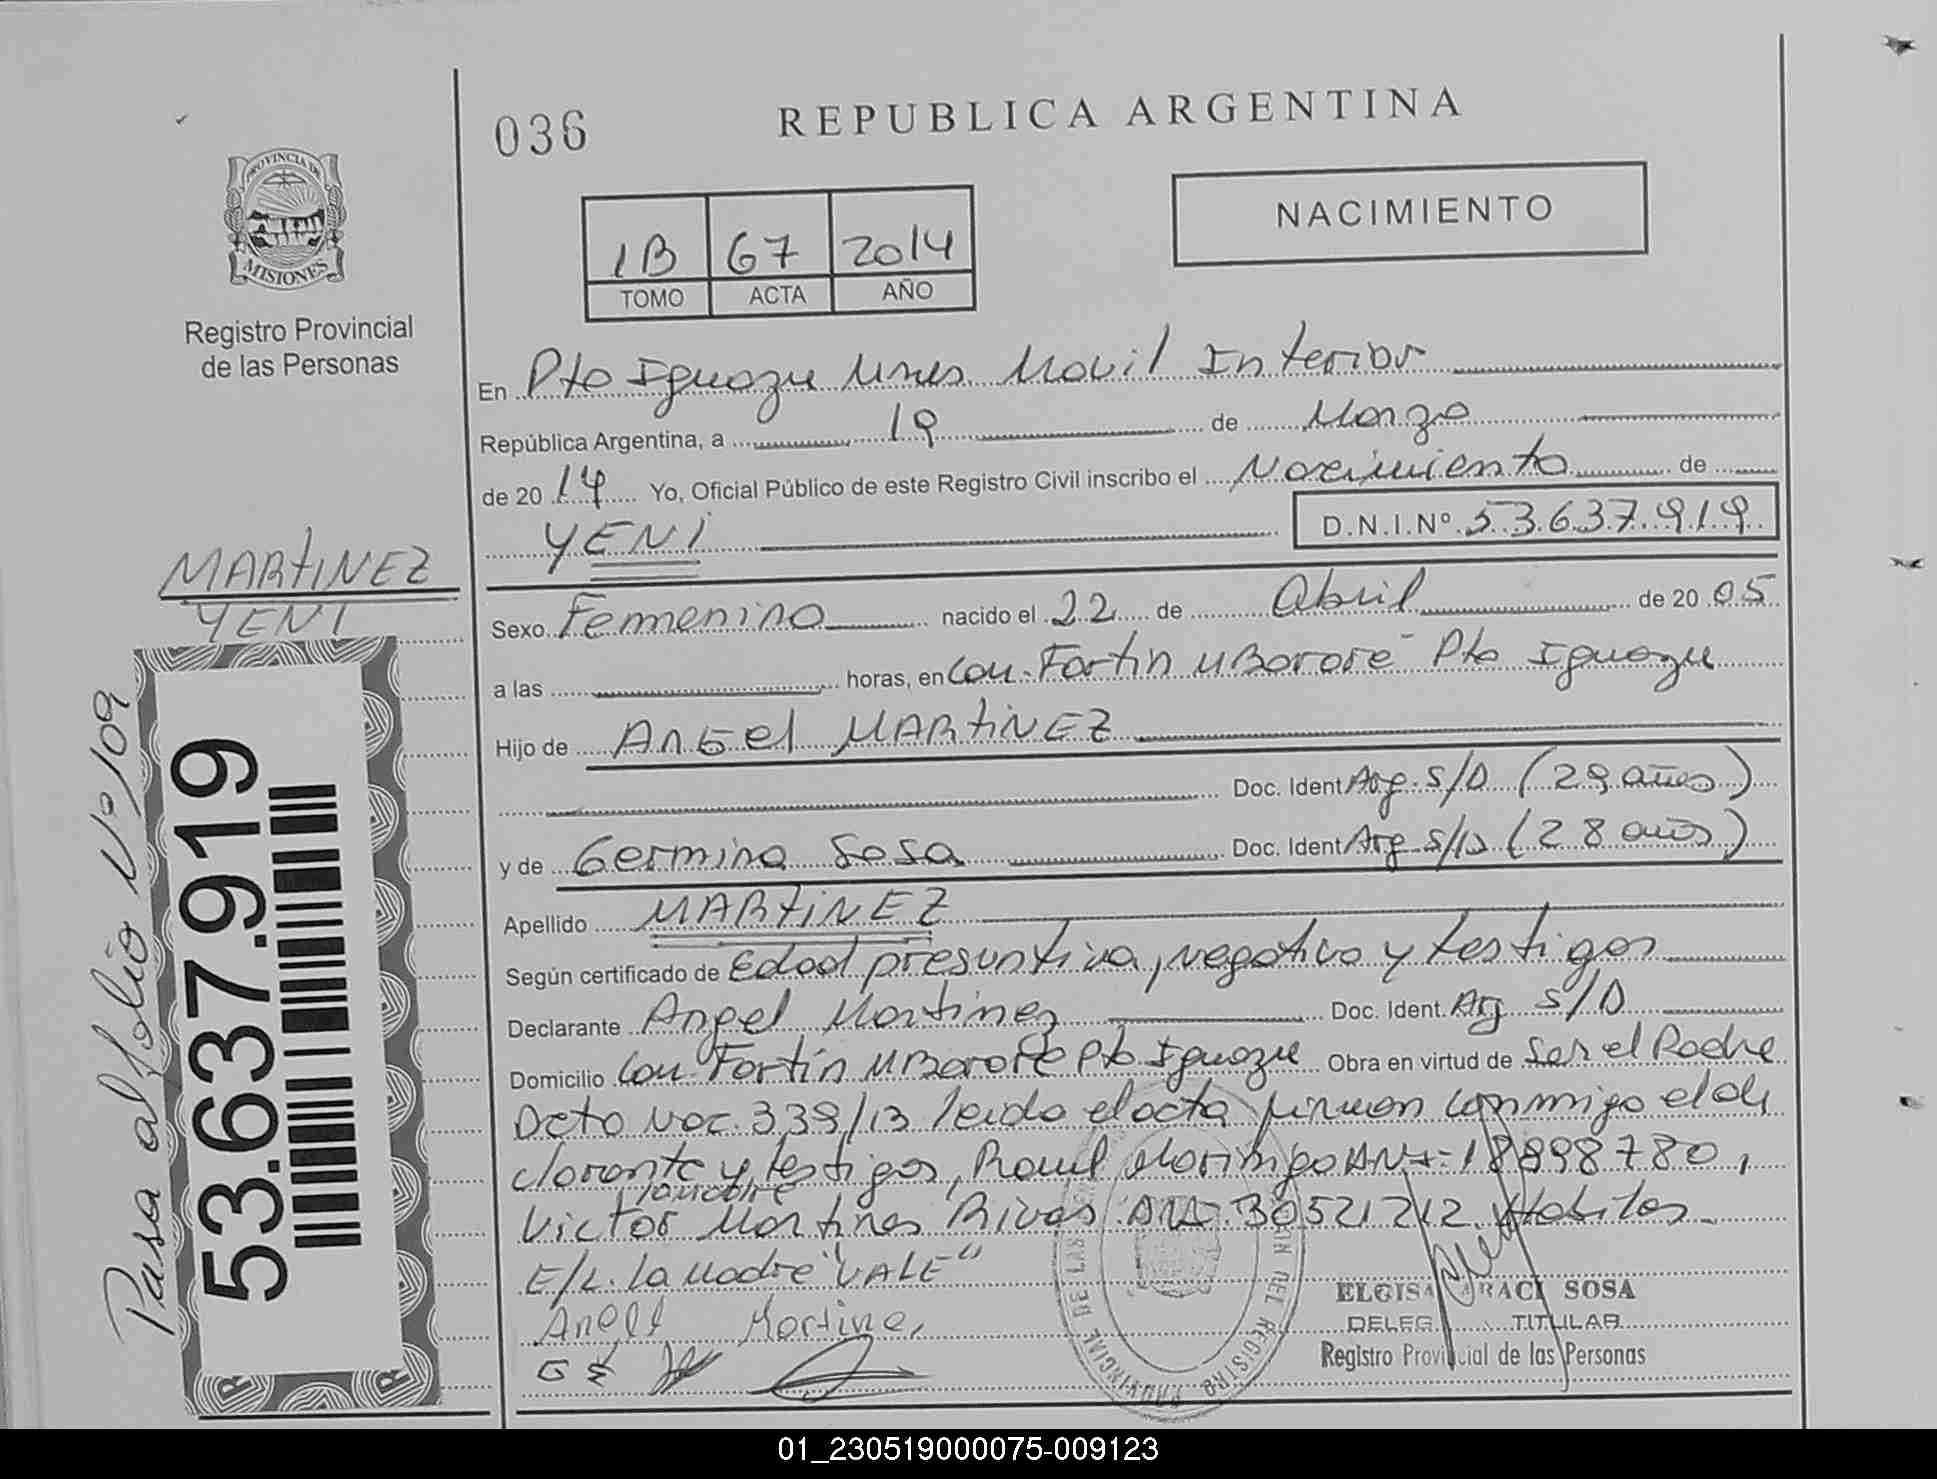 036
REPUBLICA ARGENTINA
NACIMIENTO
PROVINCIA DE
MISIONES
Registro Provincial
de las Personas
1B 67 2014
TOMO ACTA AÑO
En Pto Iguazu Mnes Movil Interior
República Argentina, a 19 de Marzo
de 2014 Yo, Oficial Público de este Registro Civil inscribo el Nacimiento de
YENI D.N.I.Nº 53.637.919
MARTINEZ
YENI
Sexo Femenino nacido el 22 de Abril de 2005
a las horas, en Com. Fortin MBororé Pto Iguazu
Hijo de Angel MARTINEZ
Doc. Ident Arg. S/D (29 años)
y de Germina Sosa Doc. Ident Arg S/D (28 años)
Apellido MARTINEZ
Según certificado de Edad presuntiva, negativo y testigos
Declarante Angel Martinez Doc. Ident. Arg S/D
Domicilio Com. Fortín MBororé Pto Iguazu Obra en virtud de Ser el Padre
Dcto Nac. 339/13 leido el acta firman conmigo el de
clarante y testigos, Raul DNI: 18898780,
Victor Martines Rivas DNI. 30521212
E/L. la Madre "VALE"
Pasa al folio Nº 109
53.637.919
ELGISA ARACI SOSA
DELEG. TITULAR
Registro Provincial de las Personas
01_230519000075-009123